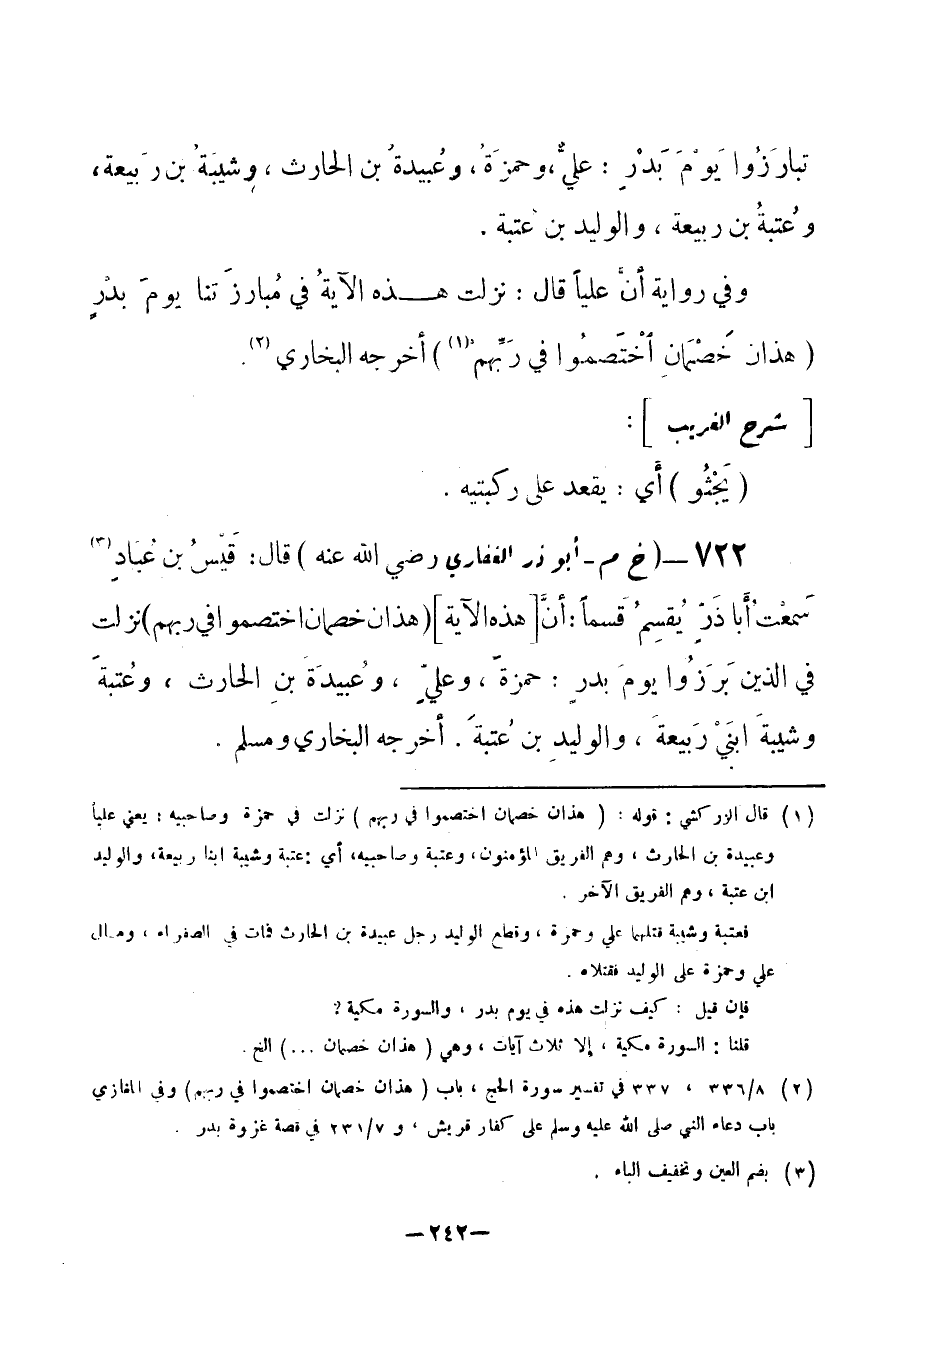 تبارَزُوا يَوْمَ بَدْرٍ : عليٌّ، وحمزَةُ، وعُبيدةُ بن الحارث ، وشيبَةُ بن رَبيعة،
وعُتبةُ بن ربيعة ، والوليد بن عتبة .
وفي رواية أنَّ علياً قال : نزلت هـــذه الآيةُ في مُبارزَتنا يومَ بدْرٍ
( هذان خَصْمَانِ اخْتَصمُوا في رَبِّهِمْ (١) ) أخرجه البخاري (٢) .
[ شرح الغريب ] :
( يَجْثُو ) أي : يقعد على ركبتيه .
٧٢٢ – ( خ م - أبو ذر الغفاري رضي الله عنه ) قال : قَيْسُ بن عُبَادٍ (٣)
سَمِعْتُ أَبا ذَرٍّ يُقسِمُ قَسماً : أنَّ [ هذه الآية ] ( هذان خصمان اختصموا في ربهم ) نزلت
في الذين بَرَزُوا يومَ بدرٍ : حمزةَ ، وعليٍّ ، وعُبيدَةَ بنِ الحارث ، وعُتبةَ
وشيبةَ ابنَيْ رَبيعةَ ، والوليدِ بن عُتبةَ . أخرجه البخاري ومسلم .
(١) قال الزركشي : قوله : ( هذان خصمان اختصموا في ربهم ) نزلت في حمزة وصاحبيه : يعني علياً
وعبيدة بن الحارث ، وهم الفريق المؤمنون، وعتبة وصاحبيه، أي :عتبة وشيبة ابنا ربيعة، والوليد
ابن عتبة ، وهم الفريق الآخر .
فعتبة وشيبة قتلهما علي وحمزة ، وقطع الوليد رجل عبيدة بن الحارث فمات في الصفراء ، ومـال
علي وحمزة على الوليد فقتلاه .
فإن قيل : كيف نزلت هذه في يوم بدر ، والسورة مكية ؟
قلنا : السورة مكية ، إلا ثلاث آيات ، وهي ( هذان خصمان ... ) الخ .
(٢) ٣٣٦/٨ ، ٣٣٧ في تفسير سورة الحج ، باب ( هذان خصمان اختصموا في ربهم ) وفي المغازي
باب دعاء النبي صلى الله عليه وسلم على كفار قريش ، و ٢٣١/٧ في قصة غزوة بدر .
(٣) بضم العين وتخفيف الباء .
–٢٤٢–